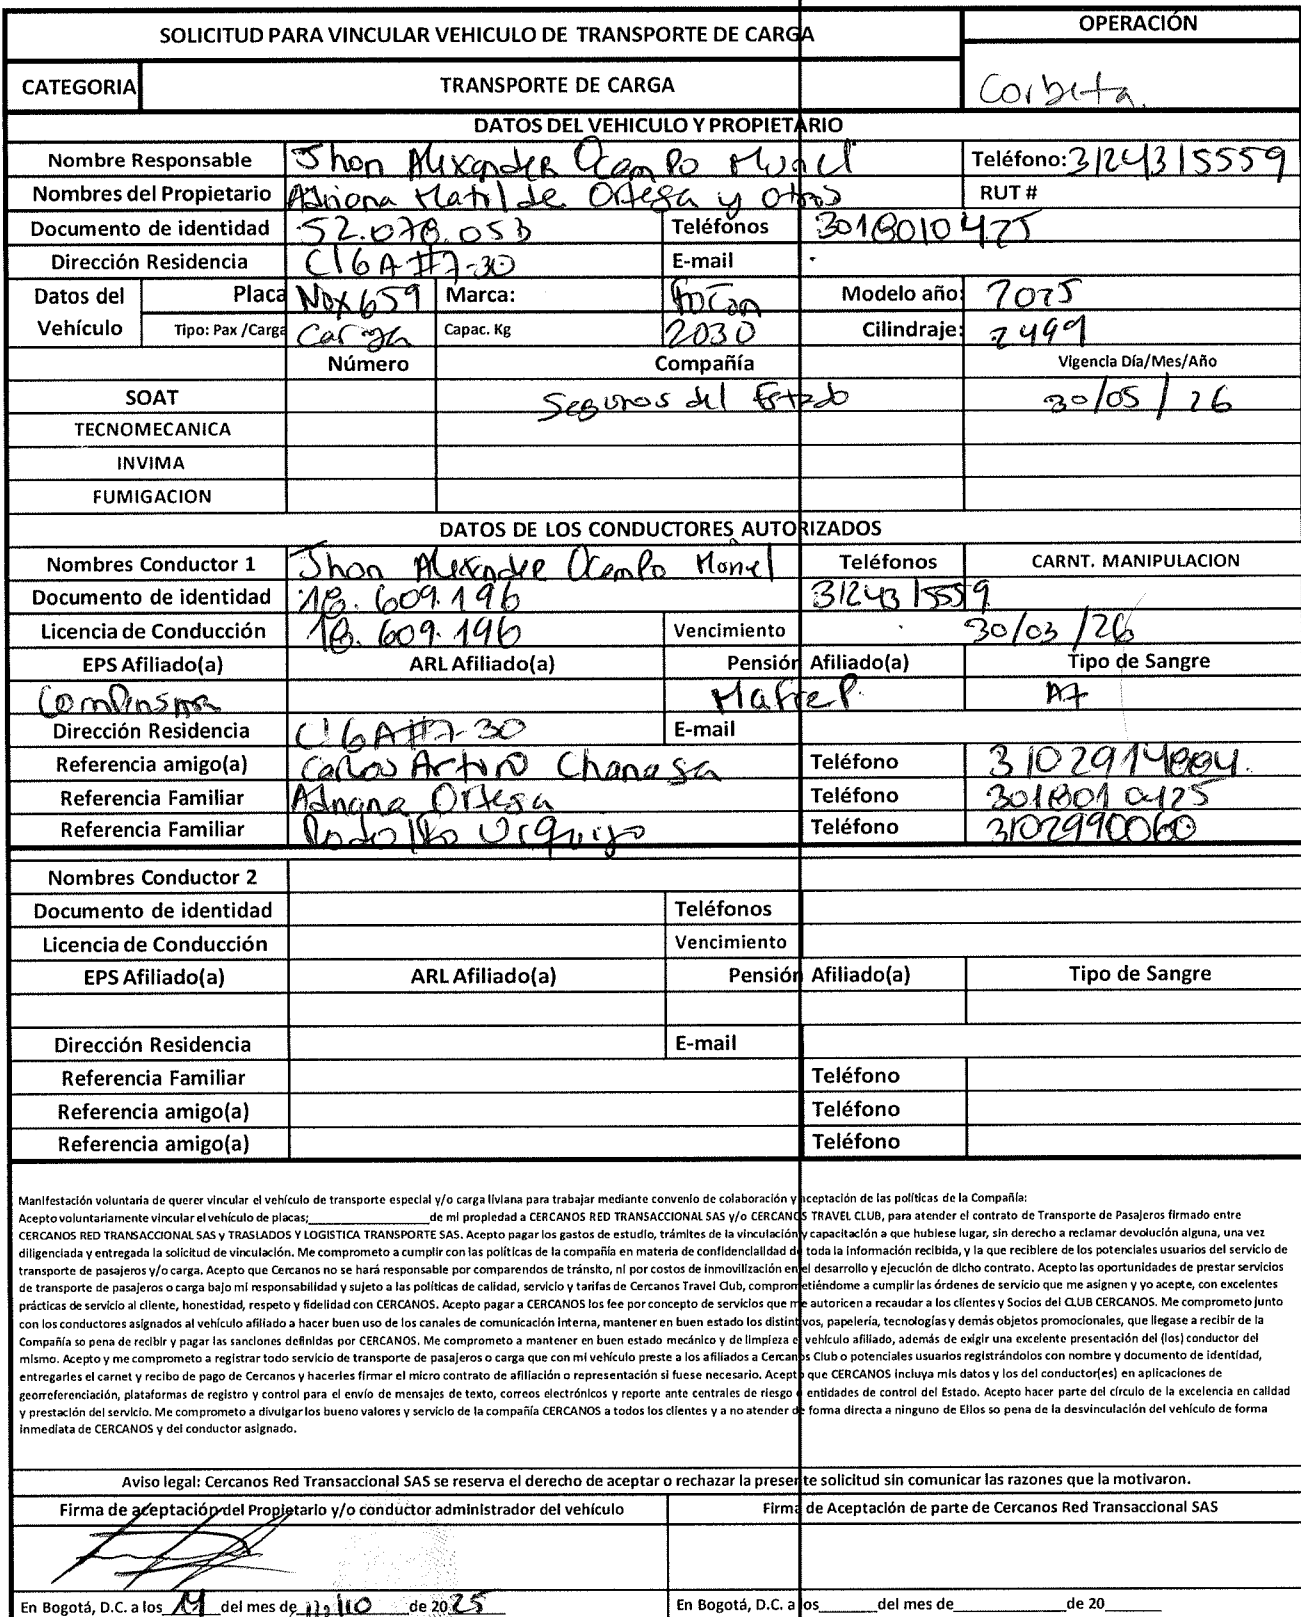 SOLICITUD PARA VINCULAR VEHICULO DE TRANSPORTE DE CARGA OPERACIÓN
CATEGORIA TRANSPORTE DE CARGA Corbeta.
DATOS DEL VEHICULO Y PROPIETARIO
Nombre Responsable Jhon Alexander Ocampo Teléfono: 3124315559
Nombres del Propietario Adriana Matilde Ortega y otros RUT #
Documento de identidad 52.078.053 Teléfonos 3018010425
Dirección Residencia Cl 6A #7-30 E-mail
Datos del Vehículo Placa NOX659 Marca: Foton Modelo año: 2025
Tipo: Pax /Carga Carga Capac. Kg 2030 Cilindraje: 2499
Número Compañía Vigencia Día/Mes/Año
SOAT Seguros del Estado 30/05/26
TECNOMECANICA
INVIMA
FUMIGACION
DATOS DE LOS CONDUCTORES AUTORIZADOS
Nombres Conductor 1 Jhon Alexander Ocampo Teléfonos CARNT. MANIPULACION
Documento de identidad 18.609.196 3124315559
Licencia de Conducción 18.609.196 Vencimiento 30/03/26
EPS Afiliado(a) ARL Afiliado(a) Pensión Afiliado(a) Tipo de Sangre
Compensar Mafre P. A+
Dirección Residencia Cl 6A #7-30 E-mail
Referencia amigo(a) Carlos Arturo Teléfono 3102914884.
Referencia Familiar Adriana Ortega Teléfono 3018010425
Referencia Familiar Rodolfo Urquijo Teléfono 3102990060
Nombres Conductor 2
Documento de identidad Teléfonos
Licencia de Conducción Vencimiento
EPS Afiliado(a) ARL Afiliado(a) Pensión Afiliado(a) Tipo de Sangre
Dirección Residencia E-mail
Referencia Familiar Teléfono
Referencia amigo(a) Teléfono
Referencia amigo(a) Teléfono
Manifestación voluntaria de querer vincular el vehículo de transporte especial y/o carga liviana para trabajar mediante convenio de colaboración y aceptación de las políticas de la Compañía:
Acepto voluntariamente vincular el vehículo de placas;____________________de mi propiedad a CERCANOS RED TRANSACCIONAL SAS y/o CERCANOS TRAVEL CLUB, para atender el contrato de Transporte de Pasajeros firmado entre
CERCANOS RED TRANSACCIONAL SAS y TRASLADOS Y LOGISTICA TRANSPORTE SAS. Acepto pagar los gastos de estudio, trámites de la vinculación y capacitación a que hubiese lugar, sin derecho a reclamar devolución alguna, una vez
diligenciada y entregada la solicitud de vinculación. Me comprometo a cumplir con las políticas de la compañía en materia de confidencialidad de toda la información recibida, y la que recibiere de los potenciales usuarios del servicio de
transporte de pasajeros y/o carga. Acepto que Cercanos no se hará responsable por comparendos de tránsito, ni por costos de inmovilización en el desarrollo y ejecución de dicho contrato. Acepto las oportunidades de prestar servicios
de transporte de pasajeros o carga bajo mi responsabilidad y sujeto a las políticas de calidad, servicio y tarifas de Cercanos Travel Club, comprometiéndome a cumplir las órdenes de servicio que me asignen y yo acepte, con excelentes
prácticas de servicio al cliente, honestidad, respeto y fidelidad con CERCANOS. Acepto pagar a CERCANOS los fee por concepto de servicios que me autoricen a recaudar a los clientes y Socios del CLUB CERCANOS. Me comprometo junto
con los conductores asignados al vehículo afiliado a hacer buen uso de los canales de comunicación interna, mantener en buen estado los distintivos, papelería, tecnologías y demás objetos promocionales, que llegase a recibir de la
Compañía so pena de recibir y pagar las sanciones definidas por CERCANOS. Me comprometo a mantener en buen estado mecánico y de limpieza el vehículo afiliado, además de exigir una excelente presentación del (los) conductor del
mismo. Acepto y me comprometo a registrar todo servicio de transporte de pasajeros o carga que con mi vehículo preste a los afiliados a Cercanos Club o potenciales usuarios registrándolos con nombre y documento de identidad,
entregarles el carnet y recibo de pago de Cercanos y hacerles firmar el micro contrato de afiliación o representación si fuese necesario. Acepto que CERCANOS incluya mis datos y los del conductor(es) en aplicaciones de
georreferenciación, plataformas de registro y control para el envío de mensajes de texto, correos electrónicos y reporte ante centrales de riesgo o entidades de control del Estado. Acepto hacer parte del círculo de la excelencia en calidad
y prestación del servicio. Me comprometo a divulgar los bueno valores y servicio de la compañía CERCANOS a todos los clientes y a no atender de forma directa a ninguno de Ellos so pena de la desvinculación del vehículo de forma
inmediata de CERCANOS y del conductor asignado.
Aviso legal: Cercanos Red Transaccional SAS se reserva el derecho de aceptar o rechazar la presente solicitud sin comunicar las razones que la motivaron.
Firma de aceptación del Propietario y/o conductor administrador del vehículo Firma de Aceptación de parte de Cercanos Red Transaccional SAS
En Bogotá, D.C. a los del mes de de 2025 En Bogotá, D.C. a los______del mes de____________de 20______